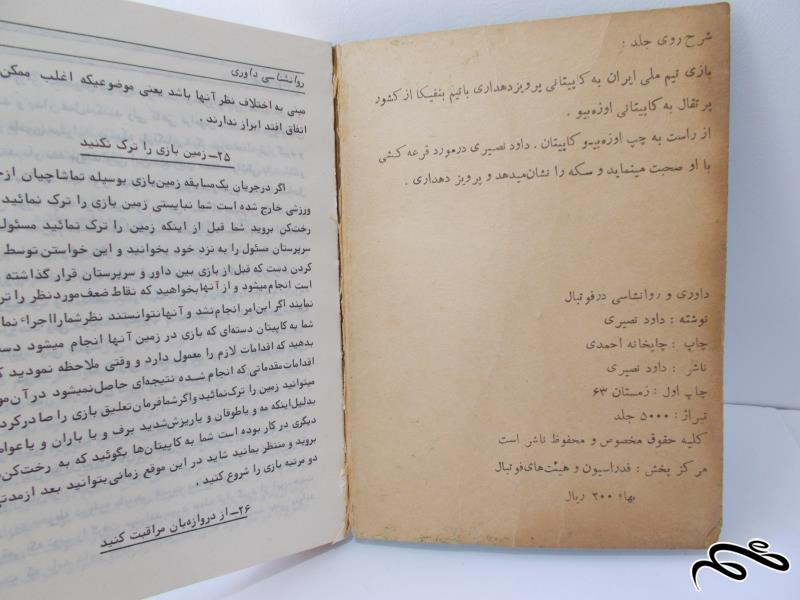 شرح روی جلد :
بازی تیم ملی ایران به کاپیتانی پرویز دهداری با تیم بنفیکا از کشور
پرتقال به کاپیتانی اوزه‌بیو .
از راست به چپ اوزه‌بیو کاپیتان . داود نصیری در مورد قرعه کشی
با او صحبت مینماید و سکه را نشان میدهد و پرویز دهداری .
داوری و روانشناسی در فوتبال
نوشته : داود نصیری
چاپ : چاپخانه احمدی
ناشر : داود نصیری
چاپ اول : زمستان ۶۳
تیراژ : ۵۰۰۰ جلد
کلیه حقوق مخصوص و محفوظ ناشر است
مرکز پخش : فدراسیون و هیئت‌های فوتبال
بهاء ۲۰۰ ریال
روانشناسی داوری
مبنی به اختلاف نظر آنها باشد یعنی موضوعیکه اغلب ممکن
اتفاق افتد ابراز ندارند .
۲۵ــ زمین بازی را ترک نکنید
اگر در جریان یک مسابقه زمین بازی بوسیله تماشاچیان از
ورزشی خارج شده است شما نبایستی زمین بازی را ترک نمائید
رخت‌کن بروید شما قبل از اینکه زمین را ترک نمائید مسئول
سرپرستان مسئول را به نزد خود بخوانید و این خواستن توسط
کردن دست که قبل از بازی بین داور و سرپرستان قرار گذاشته
است انجام میشود و از آنها بخواهید که نقاط ضعف مورد نظر را
نمایند اگر این امر انجام نشد و آنها نتوانستند نظر شما را اجراء
شما به کاپیتان دسته‌ای که بازی در زمین آنها انجام میشود
بدهید که اقدامات لازم را معمول دارد و وقتی ملاحظه نمودید
اقدامات مقدماتی که انجام شده نتیجه‌ای حاصل نمیشود در آن
میتوانید زمین را ترک نمائید و اگر شما فرمان تعلیق بازی را صادر کرد
بدلیل اینکه مه و یا طوفان و یا ریزش شدید برف و یا باران و یا عوا
دیگری در کار بوده است شما به کاپیتان‌ها بگوئید که به رخت‌کن
بروید و منتظر بمانید شاید در این موقع زمانی بتوانید بعد از
دو مرتبه بازی را شروع کنید .
۲۶ــ از دروازه‌بان مراقبت کنید